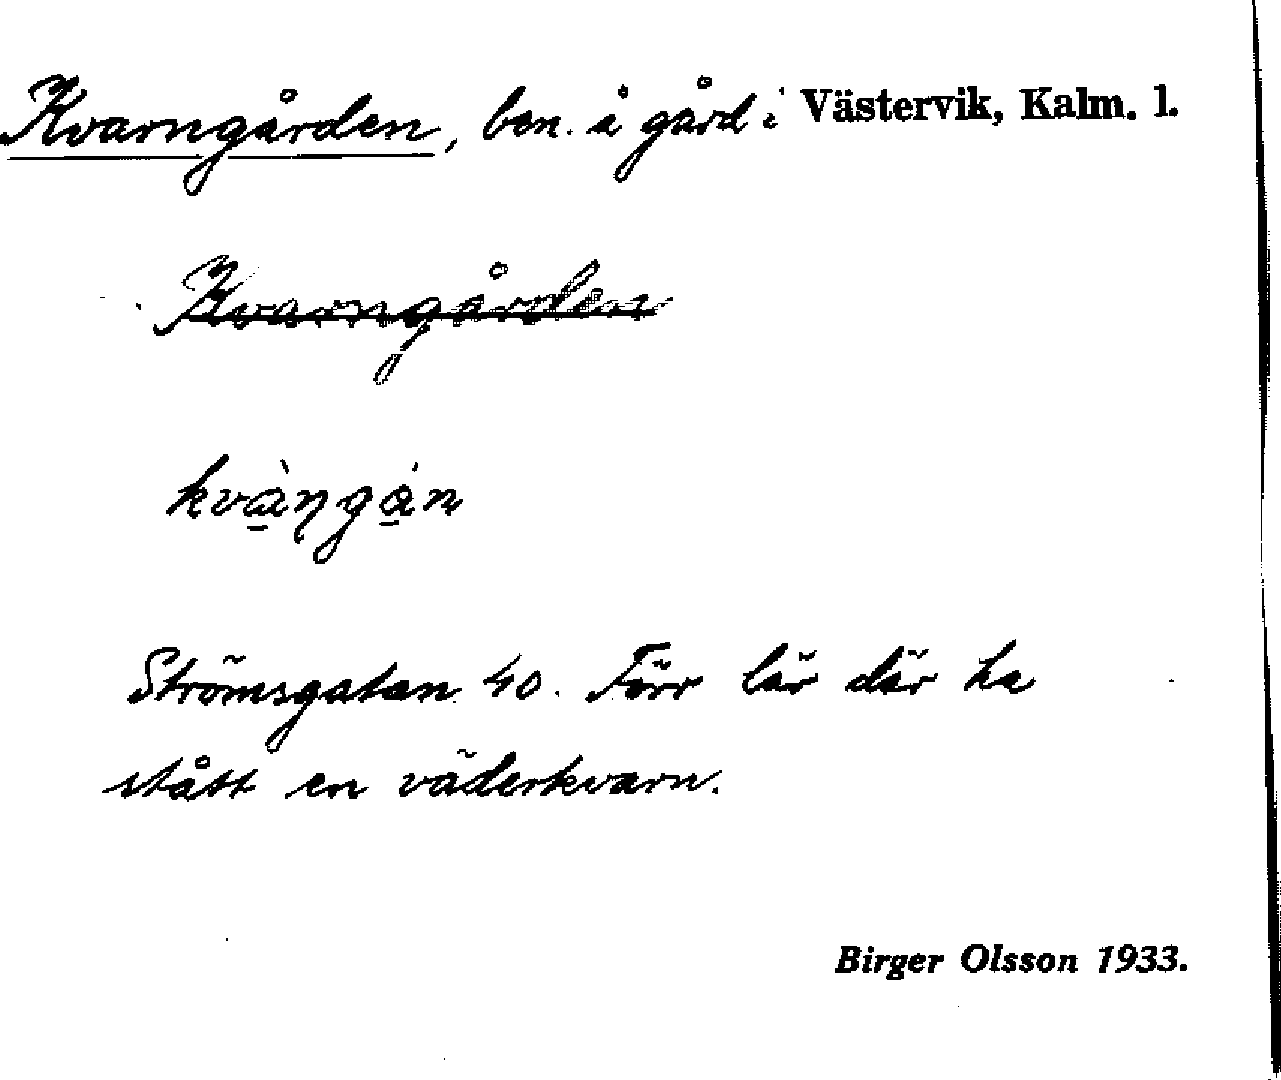 Kvarngården, ben. å gård i Västervik, Kalm. l.
Kvarngården
kvàŋgán
Strömsgatan 40. Förr lär där ha
stått en väderkvarn.
Birger Olsson 1933.